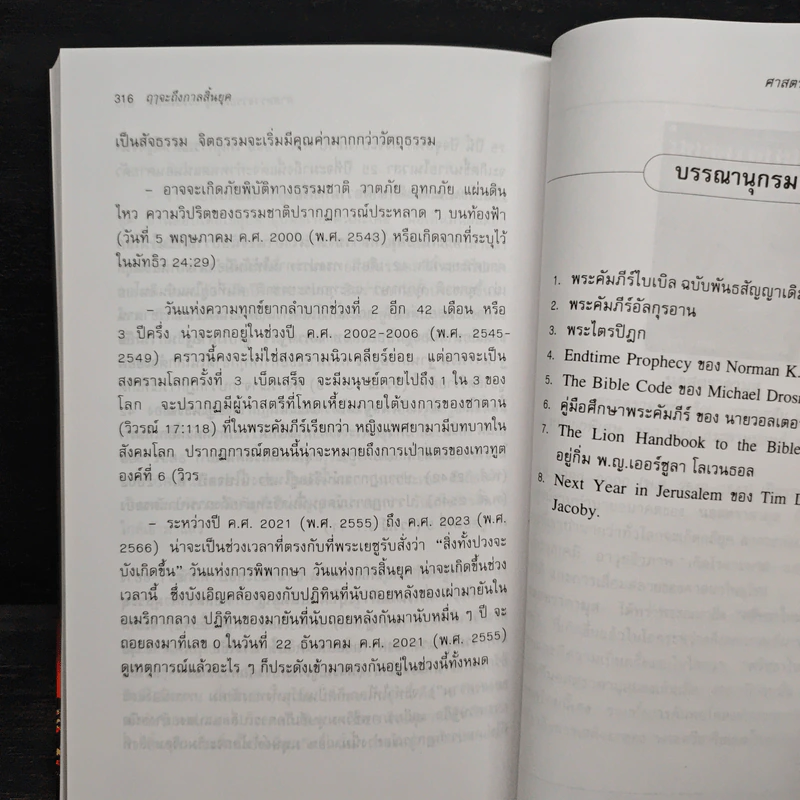 316 ฤๅจะถึงกาลสิ้นยุค
เป็นสัจธรรม จิตธรรมจะเริ่มมีคุณค่ามากกว่าวัตถุธรรม
– อาจจะเกิดภัยพิบัติทางธรรมชาติ วาตภัย อุทกภัย แผ่นดิน
ไหว ความวิปริตของธรรมชาติปรากฏการณ์ประหลาด ๆ บนท้องฟ้า
(วันที่ 5 พฤษภาคม ค.ศ. 2000 (พ.ศ. 2543) หรือเกิดจากที่ระบุไว้
ในมัทธิว 24:29)
– วันแห่งความทุกข์ยากลำบากช่วงที่ 2 อีก 42 เดือน หรือ
3 ปีครึ่ง น่าจะตกอยู่ในช่วงปี ค.ศ. 2002-2006 (พ.ศ. 2545-
2549) คราวนี้คงจะไม่ใช่สงครามนิวเคลียร์ย่อย แต่อาจจะเป็น
สงครามโลกครั้งที่ 3 เบ็ดเสร็จ จะมีมนุษย์ตายไปถึง 1 ใน 3 ของ
โลก จะปรากฏมีผู้นำสตรีที่โหดเหี้ยมภายใต้บงการของซาตาน
(วิวรณ์ 17:118) ที่ในพระคัมภีร์เรียกว่า หญิงแพศยามามีบทบาทใน
สังคมโลก ปรากฏการณ์ตอนนี้น่าจะหมายถึงการเป่าแตรของเทวทูต
องค์ที่ 6 (วิวร
– ระหว่างปี ค.ศ. 2021 (พ.ศ. 2555) ถึง ค.ศ. 2023 (พ.ศ.
2566) น่าจะเป็นช่วงเวลาที่ตรงกับที่พระเยซูรับสั่งว่า "สิ่งทั้งปวงจะ
บังเกิดขึ้น" วันแห่งการพิพากษา วันแห่งการสิ้นยุค น่าจะเกิดขึ้นช่วง
เวลานี้ ซึ่งบังเอิญคล้องจองกับปฏิทินที่นับถอยหลังของเผ่ามายันใน
อเมริกากลาง ปฏิทินของมายันที่นับถอยหลังกันมานับหมื่น ๆ ปี จะ
ถอยลงมาที่เลข 0 ในวันที่ 22 ธันวาคม ค.ศ. 2021 (พ.ศ. 2555)
ดูเหตุการณ์แล้วอะไร ๆ ก็ประดังเข้ามาตรงกันอยู่ในช่วงนี้ทั้งหมด
ศาสดา
บรรณานุกรม
1. พระคัมภีร์ไบเบิล ฉบับพันธสัญญาเดิม
2. พระคัมภีร์อัลกุรอาน
3. พระไตรปิฎก
4. Endtime Prophecy ของ Norman K.
5. The Bible Code ของ Michael Drosn
6. คู่มือศึกษาพระคัมภีร์ ของ นายวอลเตอ
7. The Lion Handbook to the Bible
อยู่กิ่ม พ.ญ.เออร์ซูลา โลเวนธอล
8. Next Year in Jerusalem ของ Tim
Jacoby.